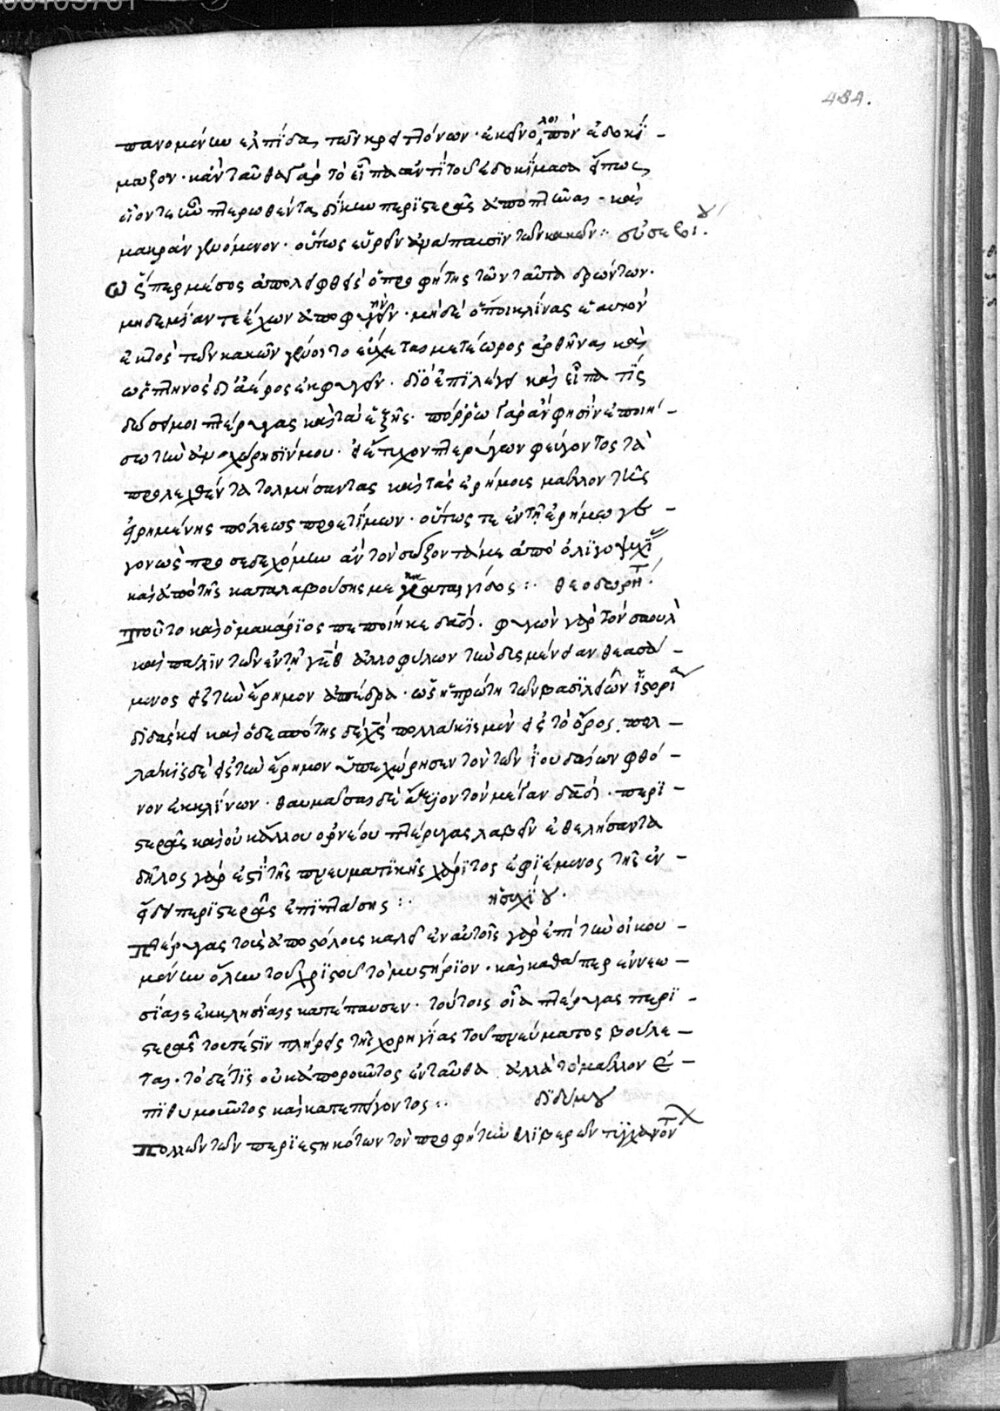 484.
πανομένων ἐλπίδας τῶν κρειττόνων· ἐκεῖνο λοιπὸν ἐδοκί-
μαζον· κἀνταῦθα γὰρ τὸ εἶπα ἀντὶ τοῦ ἐδοκίμασα ὅπως
οἷόν τε ὢν πτερωθέντας δίκην περιστερᾶς ἀποπτῆναι· καὶ
μακρὰν γενόμενον· οὕτως εὑρεῖν ἀνάπαυσιν τῶν κακῶν:· εὐσεβίου.
ὥσπερ μέσος ἀπολειφθεὶς ὁ προφήτης τῶν ταῦτα δρώντων·
μηδεμίαν τε ἔχων ἀποφυγήν· μηδὲ ὅποι κλίνας ἑαυτὸν
ἐκτὸς τῶν κακῶν γένοιτο εὔχεται μετέωρος ἀρθῆναι καὶ
ὡς πτηνὸς δι' ἀέρος ἐκφυγεῖν· διὸ ἐπιλέγει καὶ εἶπα τίς
δώσει μοι πτέρυγας καὶ τὰ ἑξῆς· πόρρω γὰρ ἂν φησὶν ἐποιη-
σάμην τὴν ἀναχώρησίν μου· εἰ ἔτυχον πτερύγων φεύγοντος τὰ
προλεχθέντα τολμήσαντας καὶ τὰς ἐρήμους μᾶλλον τῆς
εἰρημένης πόλεως προετίμων· οὕτως τε ἐν τῇ ἐρήμῳ γε-
γονὼς προσεδεχόμην ἂν τὸν σώζοντά με ἀπὸ ὀλιγοψυχί
καὶ ἀπὸ τῆς καταλαβούσης με καταιγίδος:· θεοδωρήτ.
Τοῦτο καὶ ὁ μακάριος πεποίηκε δαδ· φυγὼν γὰρ τὸν σαοὺλ
καὶ πάλιν τῶν ἐν τῇ γὲθ ἀλλοφύλων τὴν δυσμένειαν θεασά-
μενος εἰς τὴν ἔρημον ἀπέδρα· ὡς ἡ πρώτη τῶν βασιλειῶν ἱστορία
διδάσκει καὶ ὁ δεσπότης δὲ χς πολλάκις μὲν εἰς τὸ ὄρος πολ-
λάκις δὲ εἰς τὴν ἔρημον ὑπεχώρησεν τὸν τῶν ἰουδαίων φθό-
νον ἐκκλίνων· θαυμάσαι δὲ ἄξιον τὸν μέγαν δαδ· περι-
στερᾶς καὶ οὐκ ἄλλου ὀρνέου πτέρυγας λαβεῖν ἐθελήσαντα
δῆλος γάρ ἐστι τῆς πνευματικῆς χάριτος ἐφιέμενος τῆς ἐν
εἴδει περιστερᾶς ἐπιπτάσης:· ἡσυχίου.
Πτέρυγας τοὺς ἀποστόλους καλεῖ ἐν αὐτοῖς γὰρ ἐπὶ τὴν οἰκου-
μένην ὅλην τοῦ χριστοῦ τὸ μυστήριον· καὶ καθάπερ ἐννεω-
σίαις ἐκκλησίαις κατέπαυσεν· τούτοις οἷα πτέρυγας περι-
στερᾶς τουτέστιν πλήρεις τῆς χορηγίας τοῦ πνεύματος βούλε-
ται· τὸ δὲ τίς οὐκ ἀποροῦντος ἐνταῦθα ἀλλὰ τὸ μᾶλλον ἐ-
πιθυμοῦντος καὶ κατεπείγοντος:· διδύμου
Πολλῶν τῶν περιεστηκότων τὸν προφήτην θλιβερῶν τυγχανόντ